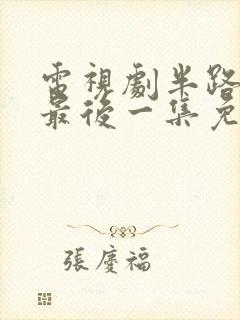 電視劇半路
最後一集免
張慶福